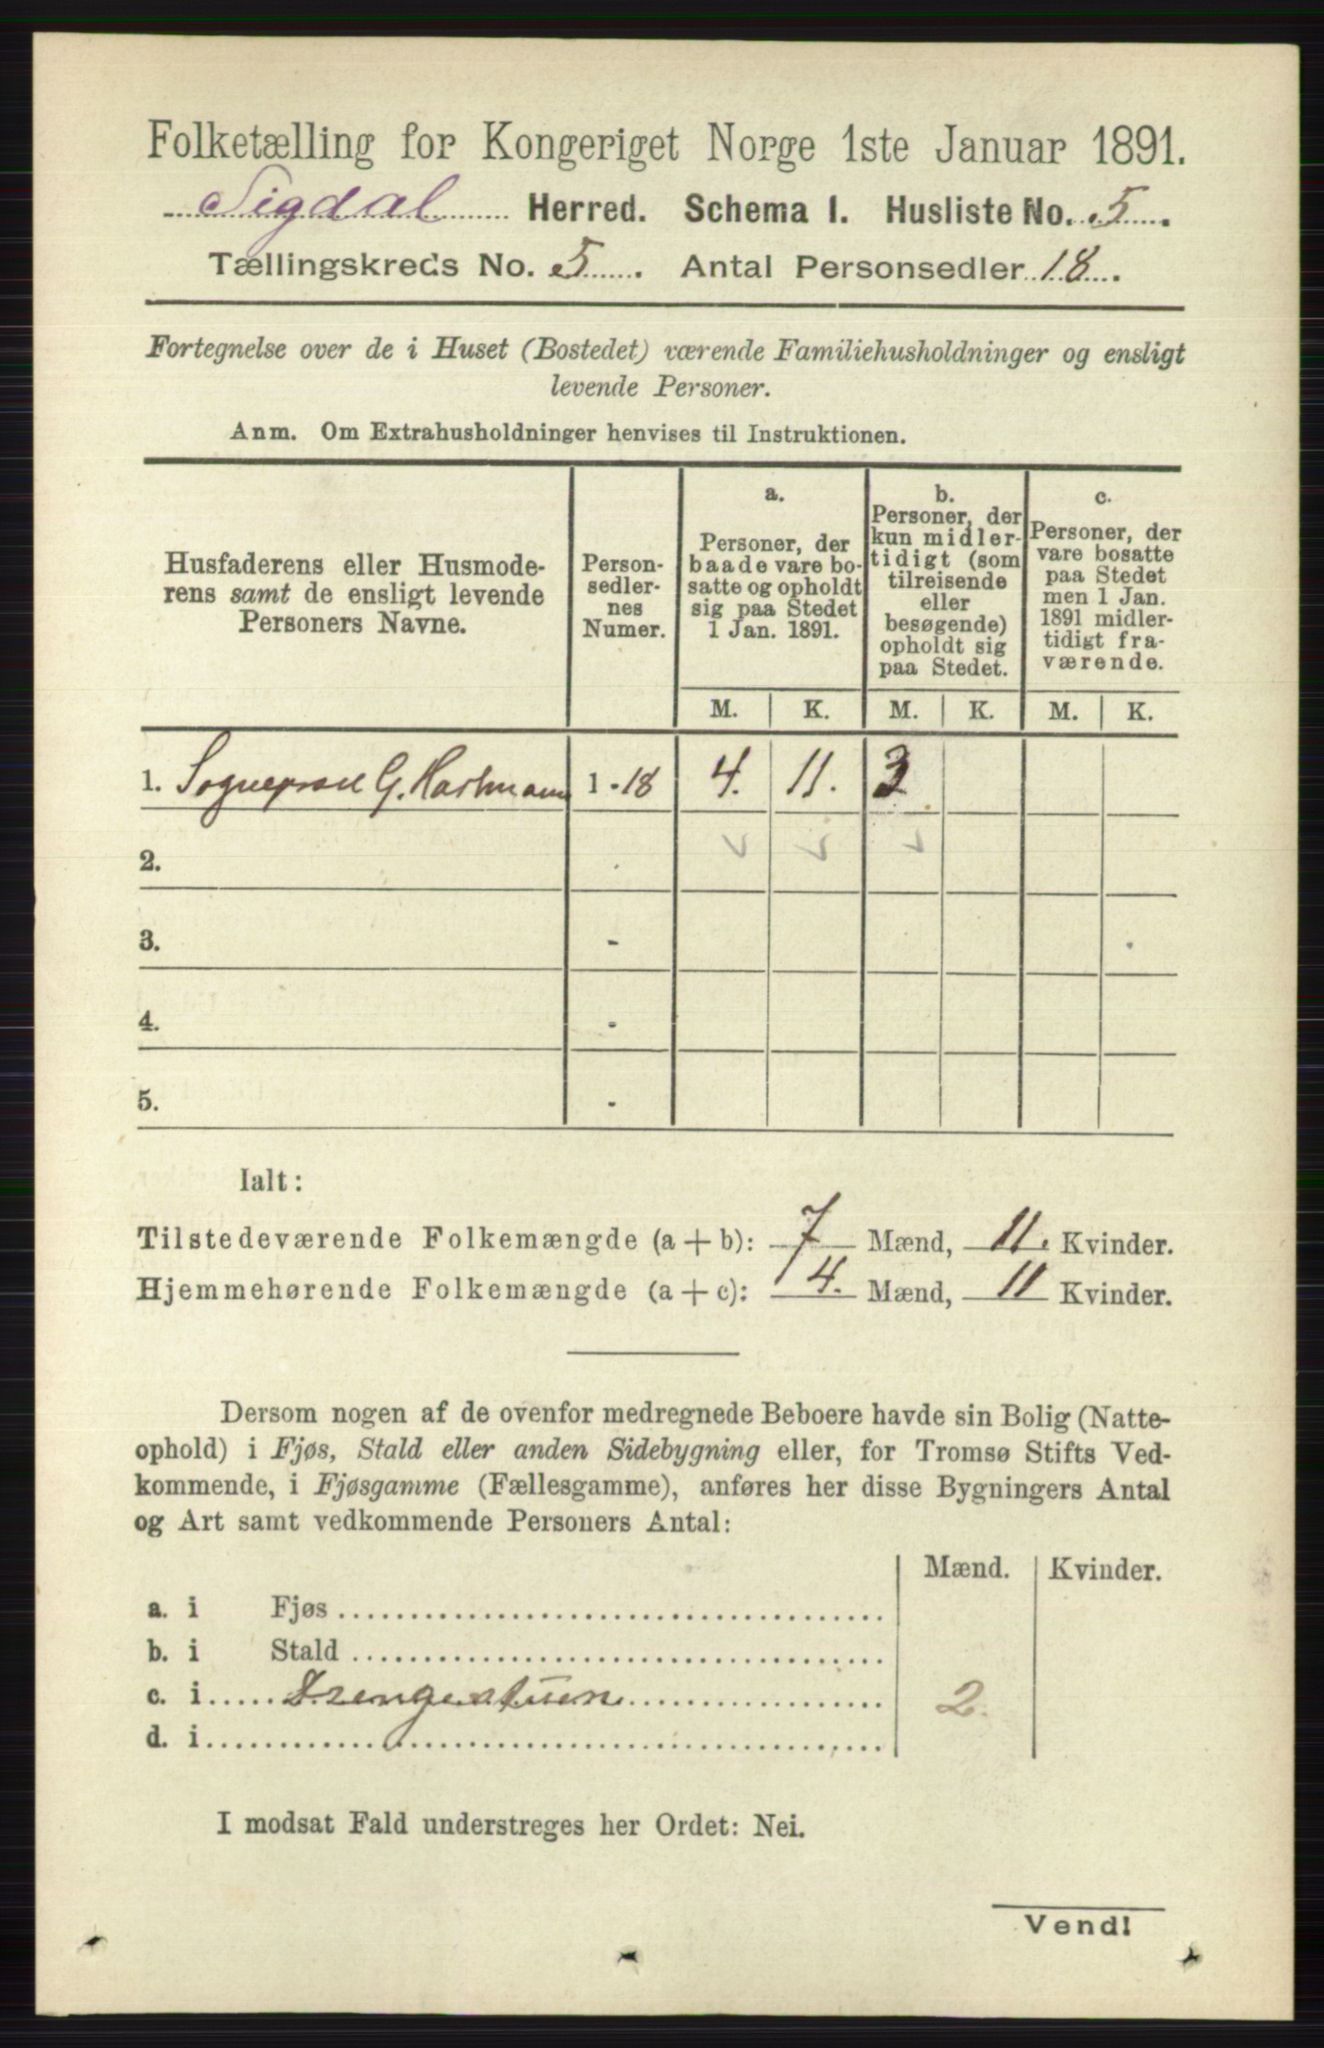 Folketælling for Kongeriget Norge 1ste Januar 1891.
Sigdal Herred. Schema I. Husliste No. 5.
Tællingskreds No. 5. Antal Personsedler 18.
Fortegnelse over de i Huset (Bostedet) værende Familiehusholdninger og ensligt
levende Personer.
Anm. Om Extrahusholdninger henvises til Instruktionen.
Husfaderens eller Husmode-
rens samt de ensligt levende
Personers Navne.
Person-
sedler-
nes
Numer.
a.
Personer, der
baade vare bo-
satte og opholdt
sig paa Stedet
1 Jan. 1891.
b.
Personer, der
kun midler-
tidigt (som
tilreisende
eller
besøgende)
opholdt sig
paa Stedet.
c.
Personer, der
vare bosatte
paa Stedet
men 1 Jan.
1891 midler-
tidigt fra-
værende.
M. K. M. K. M. K.
1. Sogneprest G. Hartmann 1-18 4. 11. 3
2.
3. -
4. -
5. -
Ialt:
Tilstedeværende Folkemængde (a + b): 7 Mænd, 11. Kvinder.
Hjemmehørende Folkemængde (a + c): 4. Mænd, 11 Kvinder.
Dersom nogen af de ovenfor medregnede Beboere havde sin Bolig (Natte-
ophold) i Fjøs, Stald eller anden Sidebygning eller, for Tromsø Stifts Ved-
kommende, i Fjøsgamme (Fællesgamme), anføres her disse Bygningers Antal
og Art samt vedkommende Personers Antal:
Mænd. Kvinder.
a. i Fjøs
b. i Stald
c. i Drengestuen 2.
d. i
I modsat Fald understreges her Ordet: Nei.
Vend!